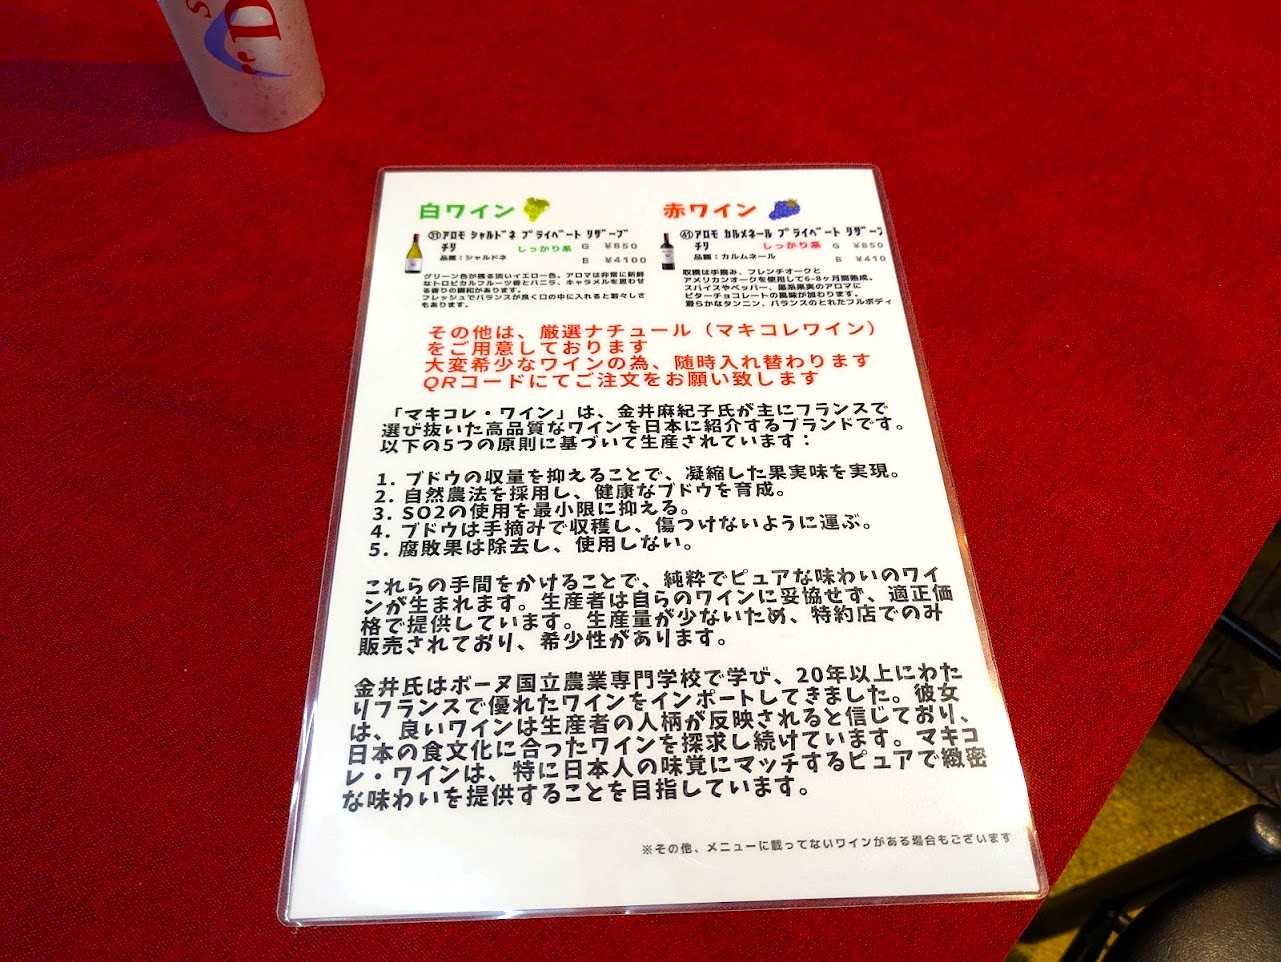 白ワイン
㉛アロモ シャルドネ プライベート リザーブ
チリ しっかり系 G ¥850
品種:シャルドネ B ¥4100
グリーン色が残る淡いイエロー色。アロマは非常に新鮮
なトロピカルフルーツ香とバニラ、キャラメルを思わせ
る香りの調和があります。
フレッシュでバランスが良く口の中に入れると若々しさ
もあります。
赤ワイン
アロモ カルメネール プライベート リザーブ
チリ しっかり系 G ¥850
品種:カルムネール B ¥410
収穫は手摘み、フレンチオークと
アメリカンオークを使用して6-8ヶ月間熟成。
スパイスやペッパー、黒系果実のアロマに
ビターチョコレートの風味が加わります。
滑らかなタンニン、バランスのとれたフルボディ
その他は、厳選ナチュール(マキコレワイン)
をご用意しております
大変希少なワインの為、随時入れ替わります
QRコードにてご注文をお願い致します
「マキコレ・ワイン」は、金井麻紀子氏が主にフランスで
選び抜いた高品質なワインを日本に紹介するブランドです。
以下の5つの原則に基づいて生産されています:
1. ブドウの収量を抑えることで、凝縮した果実味を実現。
2. 自然農法を採用し、健康なブドウを育成。
3. SO2の使用を最小限に抑える。
4. ブドウは手摘みで収穫し、傷つけないように運ぶ。
5. 腐敗果は除去し、使用しない。
これらの手間をかけることで、純粋でピュアな味わいのワイ
ンが生まれます。生産者は自らのワインに妥協せず、適正価
格で提供しています。生産量が少ないため、特約店でのみ
販売されており、希少性があります。
金井氏はボーヌ国立農業専門学校で学び、20年以上にわた
りフランスで優れたワインをインポートしてきました。彼女
は、良いワインは生産者の人柄が反映されると信じており、
日本の食文化に合ったワインを探求し続けています。マキコ
レ・ワインは、特に日本人の味覚にマッチするピュアで緻密
な味わいを提供することを目指しています。
※その他、メニューに載ってないワインがある場合もございます